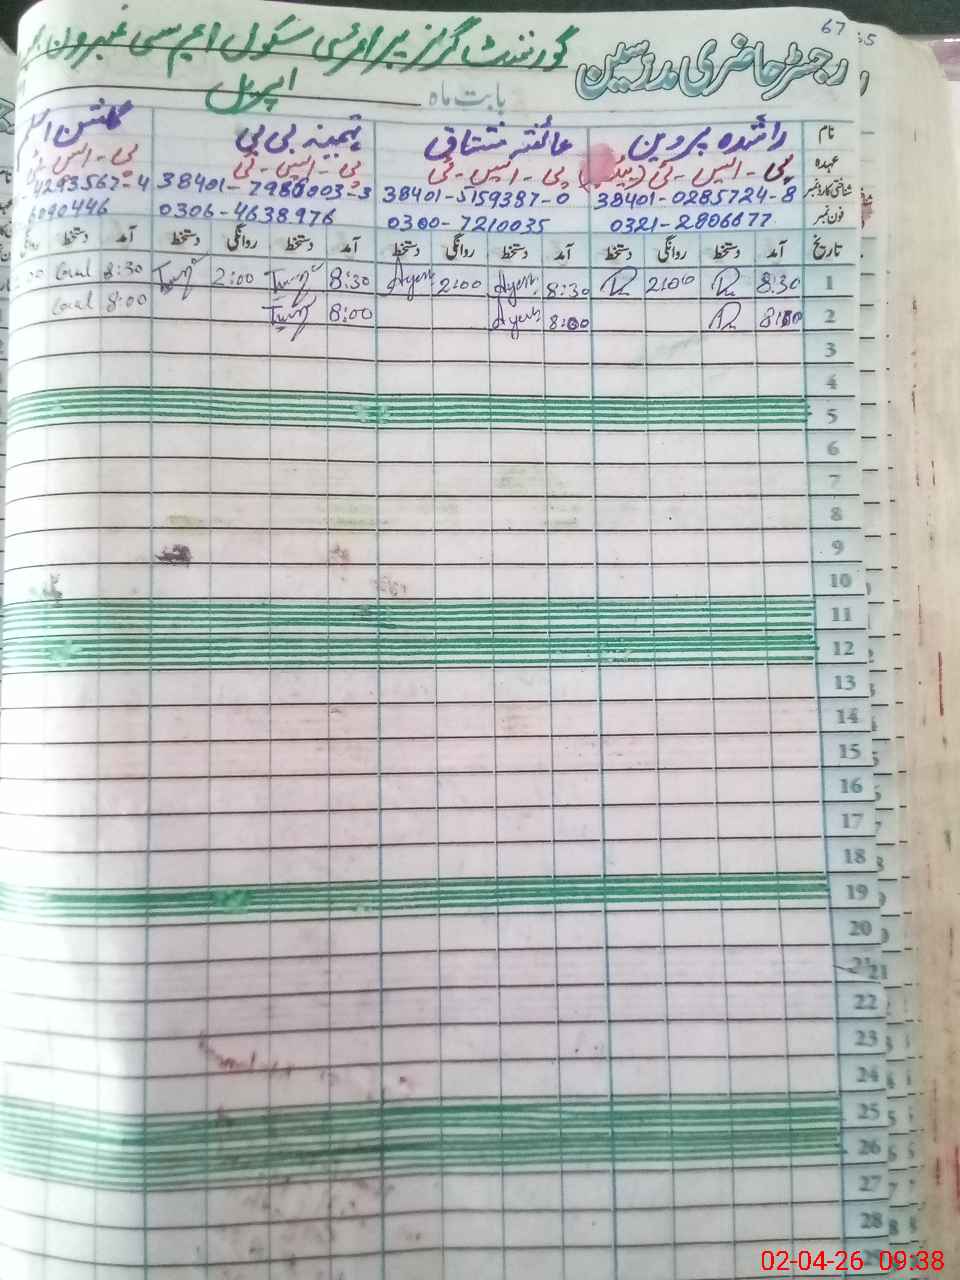 67
رجسٹر حاضری مدرسین گورنمنٹ گرلز پرائمری سکول ایم سی
بابت ماہ اپریل
نام راشدہ پروین عائشہ مشتاق ثمینہ بی بی گلشن
عہدہ پی-ایس-ٹی پی-ایس-ٹی پی-ایس-ٹی پی-ایس-ٹی
شناختی کارڈ نمبر 38401-0285724-8 38401-5159387-0 38401-7988003-3 4293567-4
فون نمبر 0321-2806677 0300-7210035 0306-4638976 6090446
تاریخ آمد دستخط روانگی دستخط آمد دستخط روانگی دستخط آمد دستخط روانگی دستخط آمد دستخط روانگی
1 8:30 2:00 8:30 Ayesh 2:00 Ayesh 8:30 2:00 8:30 Gul
2 8:00 8:00 Ayesh 8:00 8:00 Gul
3
4
5
6
7
8
9
10
11
12
13
14
15
16
17
18
19
20
21 21
22
23
24
25
26
27
28
02-04-26 09:38